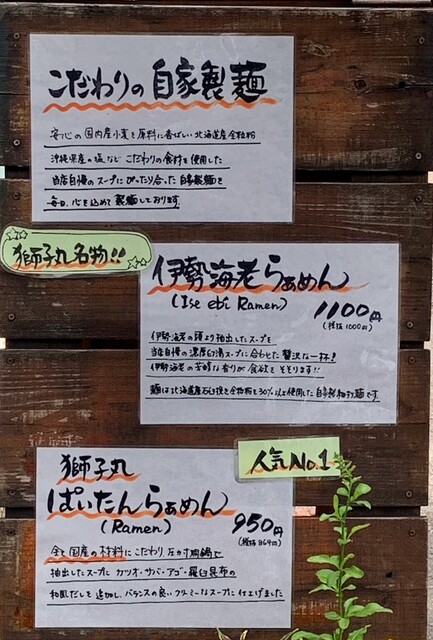 こだわりの自家製麺
安心の国内産小麦を原料に香ばしい北海道産全粒粉
沖縄県産の塩など こだわりの食材を使用した
当店自慢のスープにぴったり合った自家製麺を
毎日、心を込めて製麺しております。
獅子丸名物!!
伊勢海老らぁめん
(Ise ebi Ramen)
1100円
(税抜1000円)
伊勢海老の頭より抽出したスープを
当店自慢の濃厚白湯スープに合わせた贅沢な一杯!
伊勢海老の芳醇な香りが食欲をそそります!!
麺は北海道産石臼挽き全粒粉を30%以上使用した自家製細打ち麺です
人気No.1
獅子丸
ぱいたんらぁめん
(Ramen)
950円
(税抜864円)
全て国産の材料にこだわり、圧力寸胴鍋で
抽出したスープにカツオ・サバ・アゴ・羅臼昆布の
和風だしを追加し、バランスの良いクリーミーなスープに仕上げました